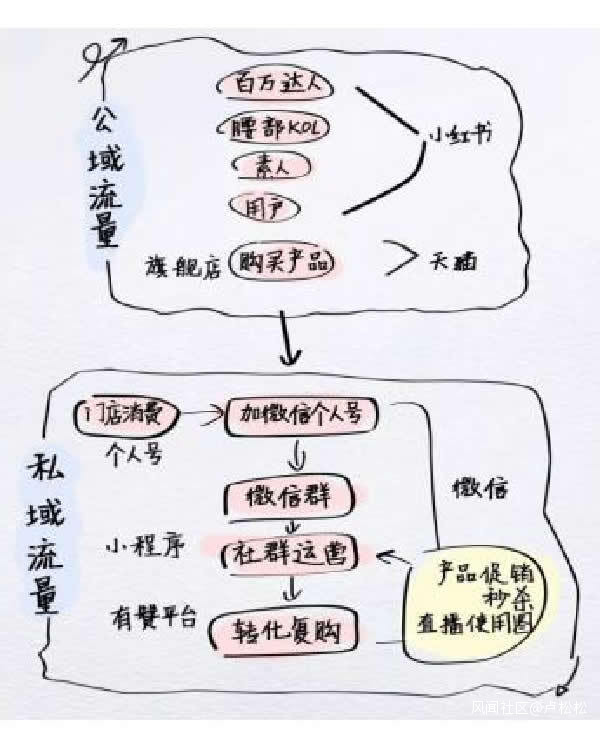 公域流量
百万达人
腰部KOL
素人
用户
小红书
旗舰店
购买产品
天猫
私域流量
门店消费
加微信个人号
个人号
微信群
微信
小程序
社群运营
产品促销
秒杀
直播使用圈
有赞平台
转化复购
风闻社区@卢松松